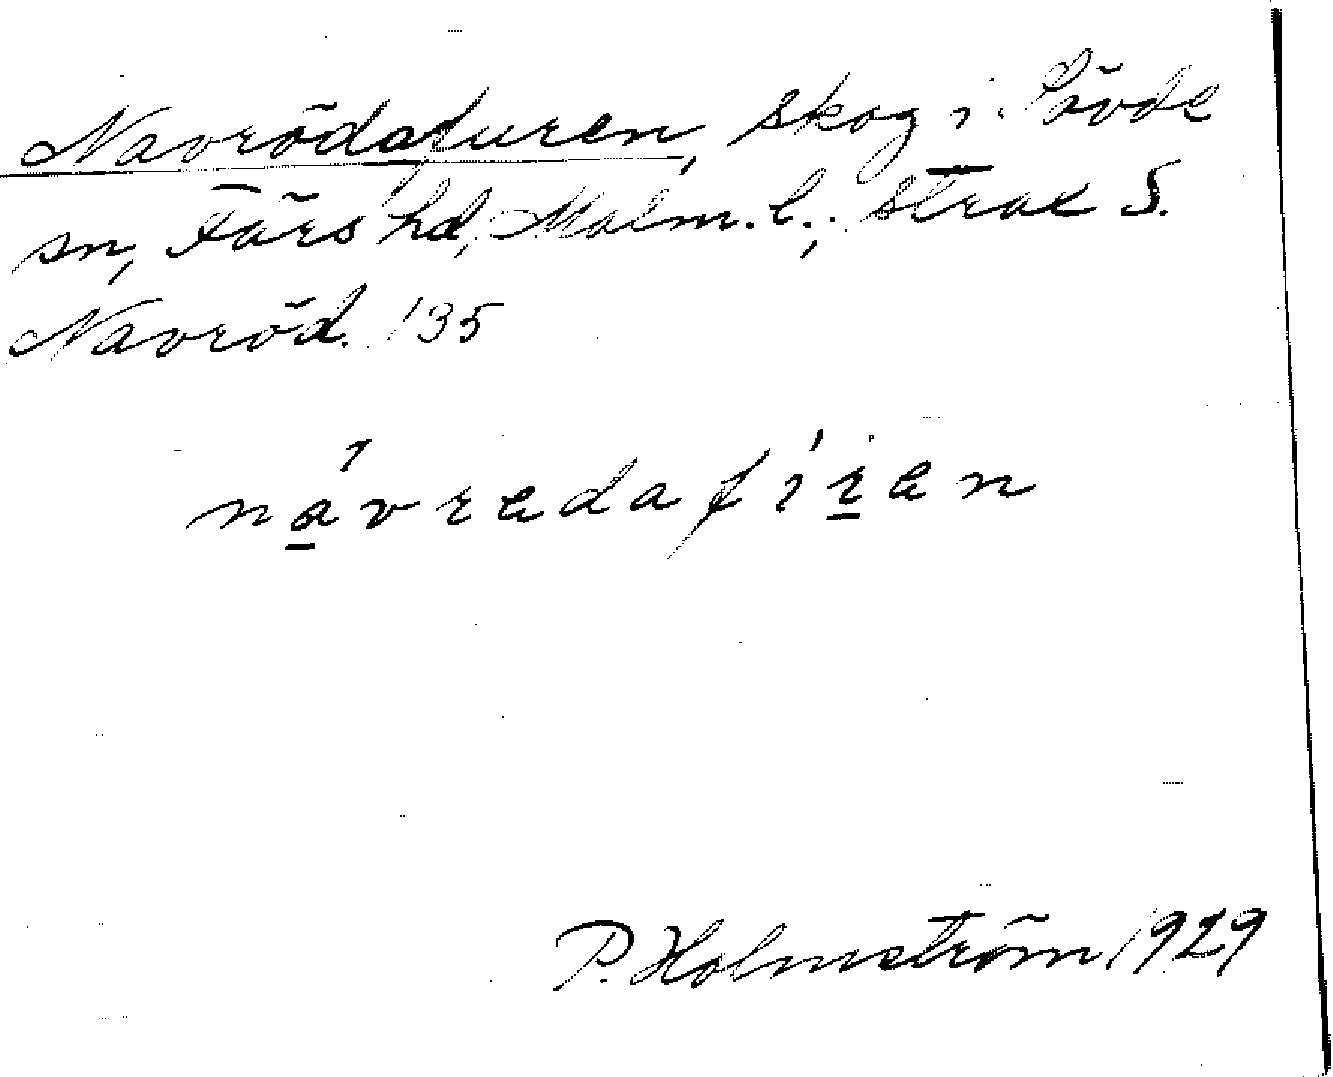 Navrödafuren, skog i Sövde
sn, Färs hd, Malm. l.; strax S.
Navröd. 135
návredafíren
P. Holmström 1929